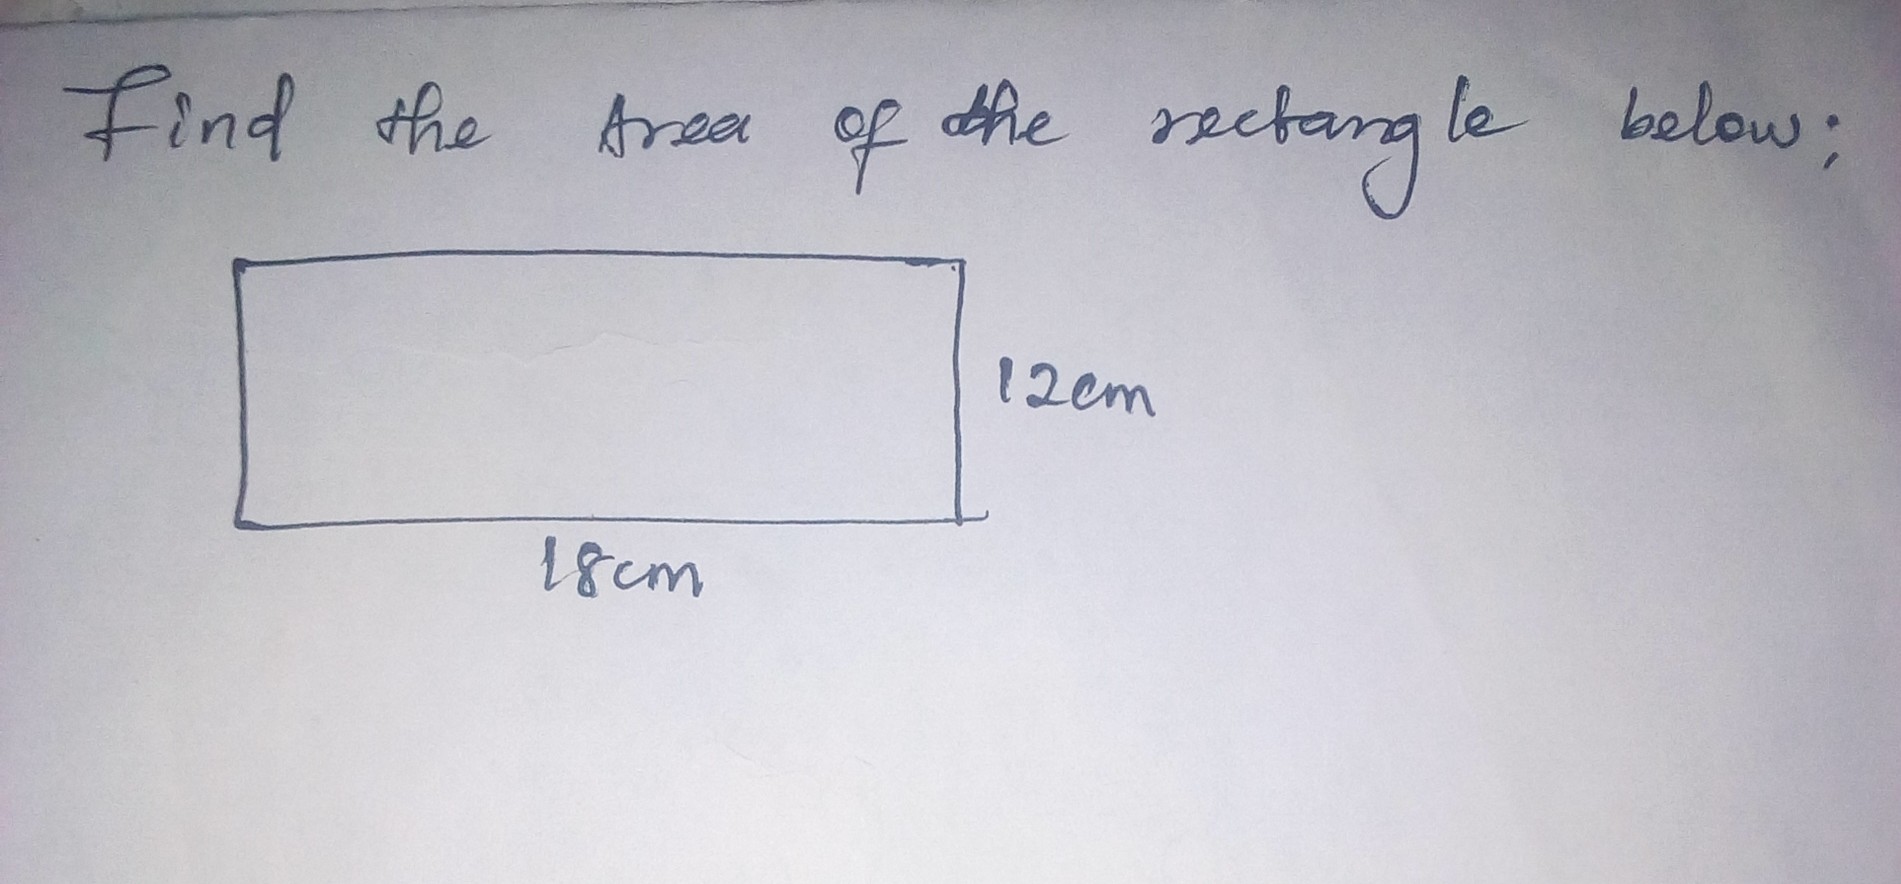 Find the Area of the rectangle below;
12cm
18cm